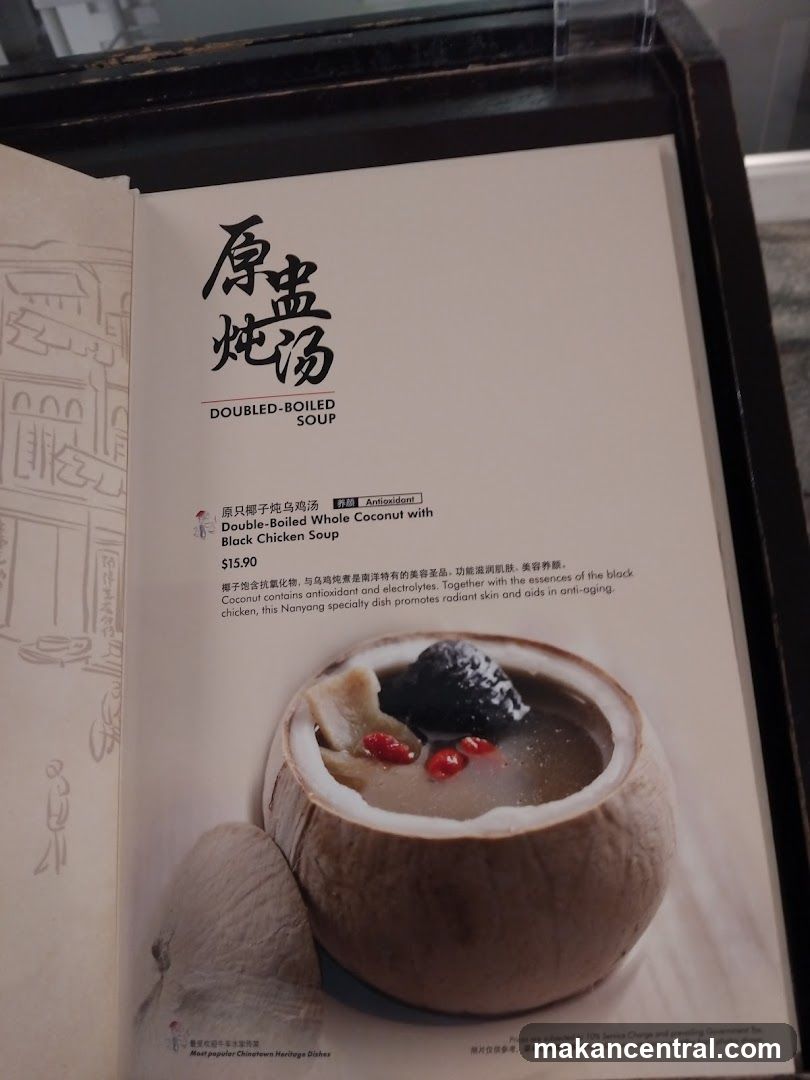 原盅
炖汤
DOUBLED-BOILED
SOUP
原只椰子炖乌鸡汤 养颜 Antioxidant
Double-Boiled Whole Coconut with
Black Chicken Soup
$15.90
椰子饱含抗氧化物，与乌鸡炖煮是南洋特有的美容圣品。功能滋润肌肤、美容养颜。
Coconut contains antioxidant and electrolytes. Together with the essences of the black
chicken, this Nanyang specialty dish promotes radiant skin and aids in anti-aging.
最受欢迎牛车水家传菜
Most popular Chinatown Heritage Dishes
10% Service Charge and prevailing Government Tax.
照片仅供参考。
makancentral.com